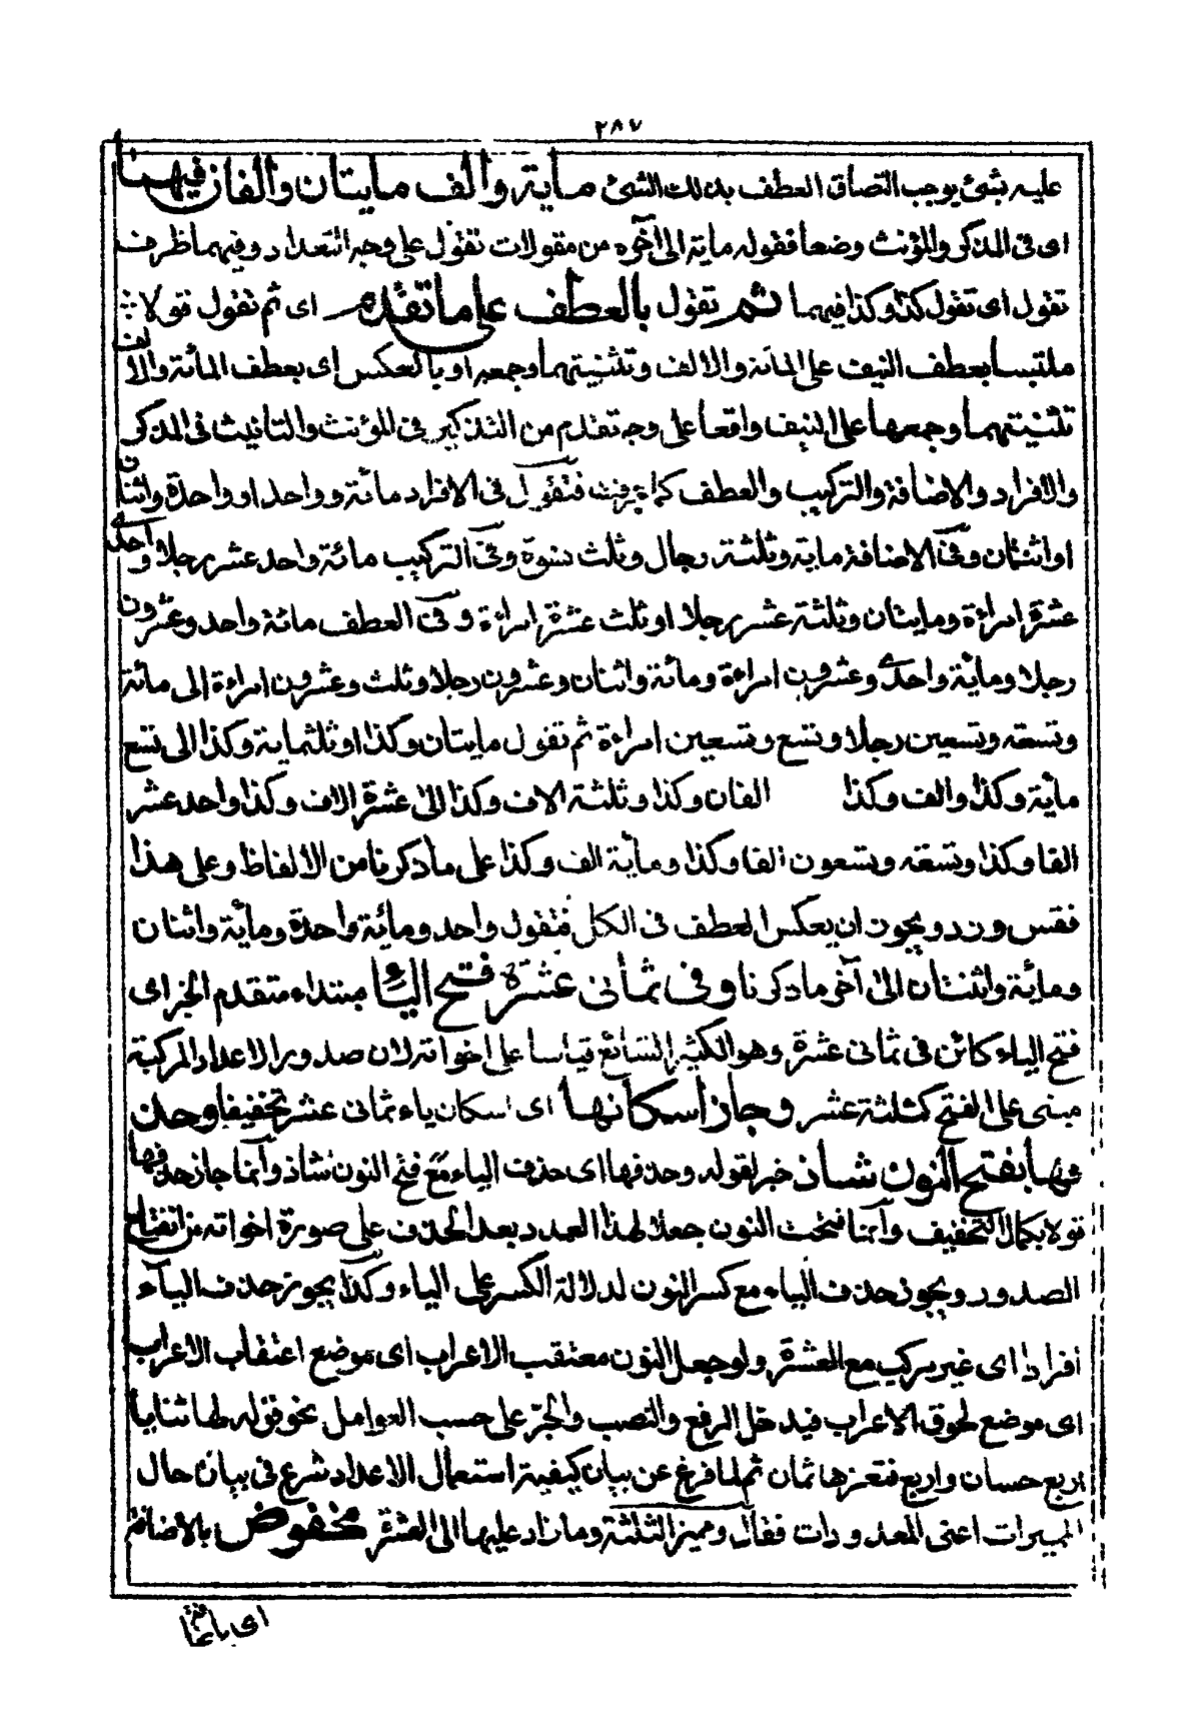 ٢٨٧
عليه بشئ يوجب التصاق العطف بذلك الشئ ماية والف مايتان والفان فيهما
اى فى المذكر والمؤنث وضعا فقوله ماية الى آخره من مقولات تقول على وجه التعداد وفيهما ظرف
تقول اى تقول كذا وكذا فيهما ثم تقول بالعطف على ما تقدم اى ثم تقول قولا
ملتبسا بعطف النيف على المائة والالف وتثنيتهما وجمعه او بالعكس اى بعطف المائة والالف
تثنيتهما وجمعها على النيف واقعا على وجه تقدم من التذكير فى المؤنث والتانيث فى المذكر
والافراد والاضافة والتركيب والعطف كما عرفت فتقول فى الافراد مائة وواحد او واحدة واثنان
او اثنتان وفى الاضافة ماية وثلثة رجال وثلث نسوة وفى التركيب مائة واحد عشر رجلا واحدى
عشرة امراءة ومايتان وثلثة عشر رجلا او ثلث عشرة امراءة وفى العطف مائة واحد وعشرون
رجلا ومايئة واحدى وعشرون امراءة ومائة واثنان وعشرون رجلا وثلث وعشرون امراءة الى مائة
وتسعة وتسعين رجلا وتسع وتسعين امراءة ثم تقول مايتان وكذا او ثلثماية وكذا الى تسع
مايئة وكذا والف وكذا الفان وكذا وثلثة الاف وكذا الى عشرة الاف وكذا واحد عشر
الفا وكذا وتسعة وتسعون الفا وكذا ومايئة الف وكذا على ما ذكرنا من الالفاظ وعلى هذا
فقس وزد ويجوز ان يعكس العطف فى الكل فتقول واحد ومائة واحدة ومايئة واثنان
ومائة واثنتان الى آخر ما ذكرنا وفى ثمانى عشرة فتح الياء مبتداء متقدم الخبر اى
فتح الياء كائن فى ثمانى عشرة وهو الكثير الشائع قياسا على اخواته لان صدور الاعداد المركبة
مبنى على الفتح كثلثة عشر وجاز اسكانها اى اسكان ياء ثمانى عشر تخفيفا وحذ
فها بفتح النون شاذ خبر لقوله وحذفها اى حذف الياء مع فتح النون شاذ وانما جاز حذفها
قولا بكمال التخفيف وانما فتحت النون جعلا لهذا العدد بعد الحذف على صورة اخواته من انفتاح
الصدور ويجوز حذف الياء مع كسر النون لدلالة الكسر على الياء وكذا يجوز حذف الياء
افرادا اى غير مركب مع العشرة ولو جعل النون معتقب الاعراب اى موضع اعتقاب الاعراب
اى موضع لحوق الاعراب فيدخل الرفع والنصب والجر على حسب العوامل نحو قوله لها ثنايا
اربع حسان واربع فثغرها ثمان ثم لما فرغ عن بيان كيفية استعمال الاعداد شرع فى بيان حال
المميزات اعنى المعدودات فقال ومميز الثلثة وما زاد عليها الى العشرة مخفوض بالاضافة